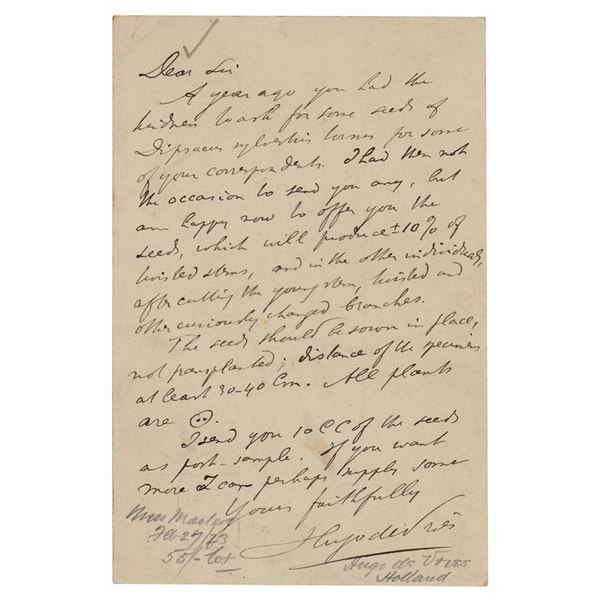 Dear Sir
A year ago you had the
kindness to ask for some seeds of
Dipsacus sylvestris torsus for some
of your correspondents. I had then not
the occasion to send you any, but
am happy now to offer you the
seeds, which will produce ± 10% of
twisted stems, and in the other individuals,
after cutting the young stem, twisted and
other curiously changed branches.
The seeds should be sown in place,
not transplanted; distance of the specimens
at least 30-40 Cm. All plants
are ☉.
I send you 10 CC of the seeds
as post-sample. If you want
more I can perhaps supply some
Yours faithfully
Hugo de Vries
Miss Masters
Feb 27/73
55/- lot
Hugo de Vries
Holland